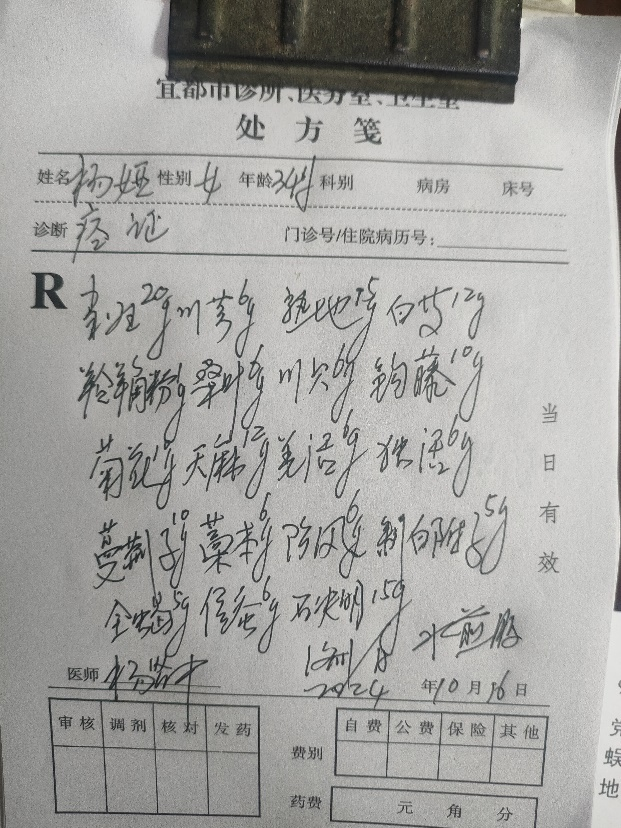 宜都市诊所、医务室、卫生室
处方笺
姓名 杨娅 性别 女 年龄 34岁 科别 病房 床号
诊断 痉证 门诊号/住院病历号:
R
20g 川芎6g 熟地15g 白芍12g
羚羊角粉 桑叶6g 川贝6g 钩藤10g
菊花 天麻12g 羌活6g 独活6g
蔓荆子10g 藁本6g 防风6g 制白附子5g
全蝎5g 僵蚕6g 石决明15g
水煎服
当日有效
医师 杨 2024 年10月16日
审核 调剂 核对 发药
费别 自费 公费 保险 其他
药费 元 角 分